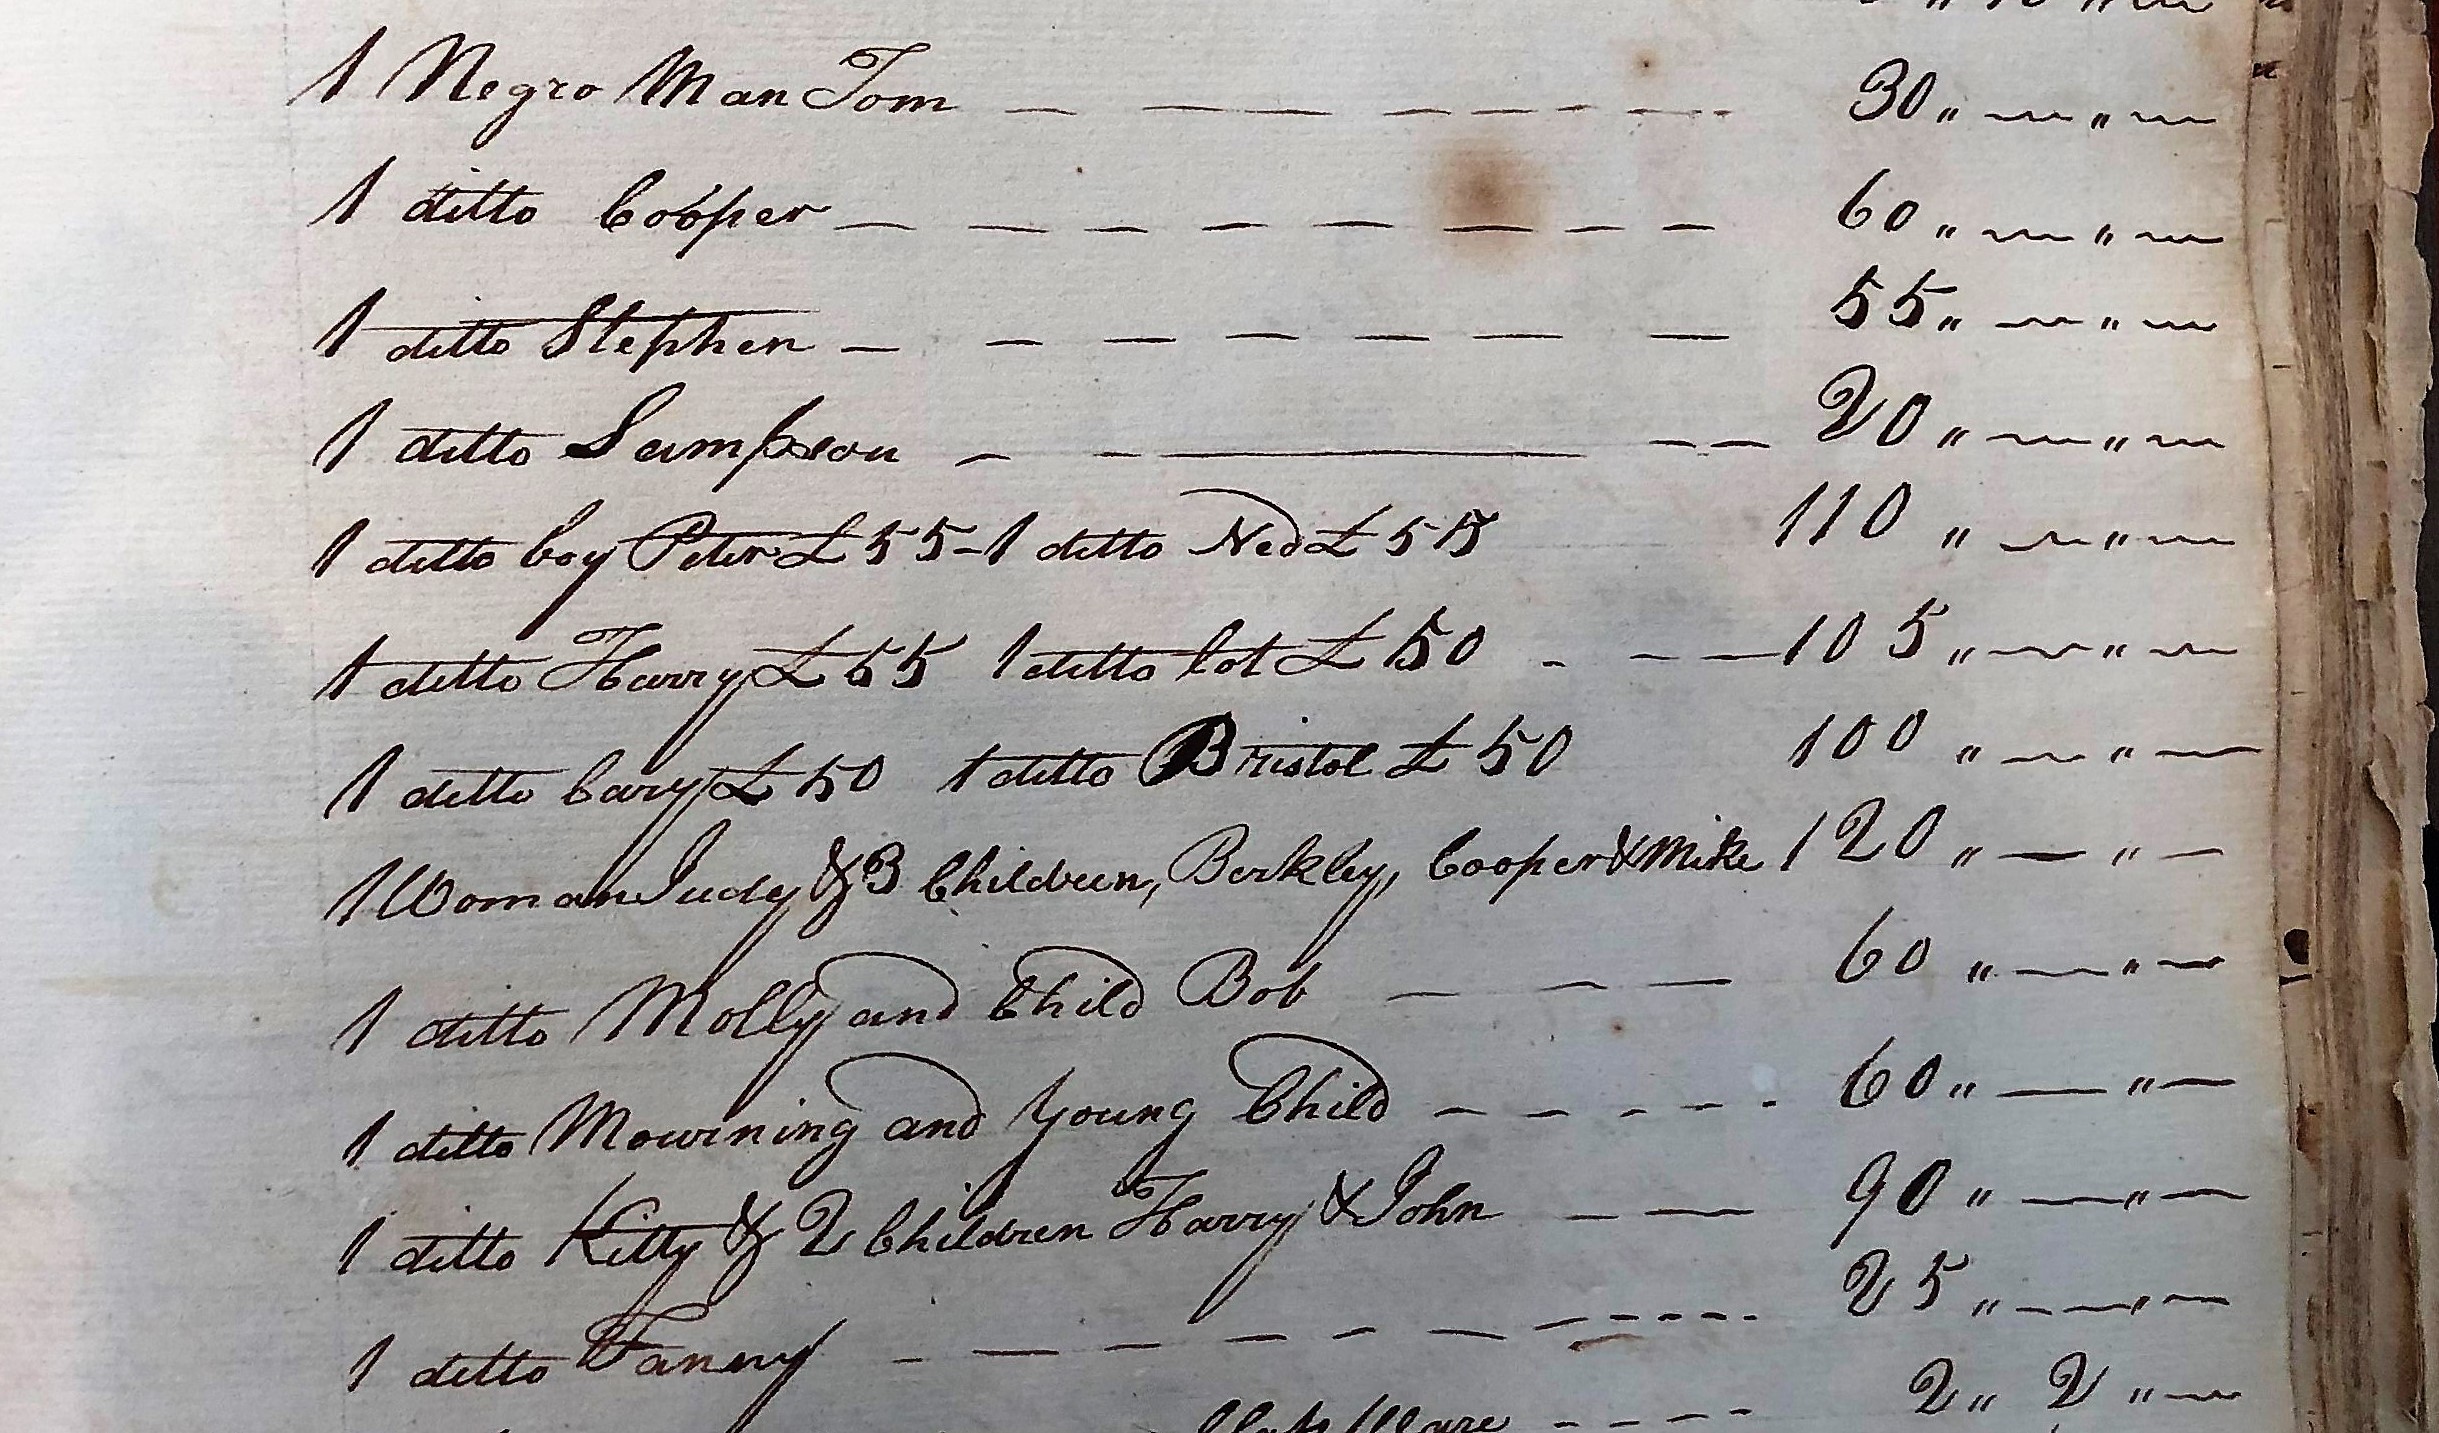 1 Negro Man Tom — — — — — — — 30 „ — „ —
1 ditto Cooper — — — — — — — — 60 „ — „ —
1 ditto Stephen — — — — — — — 55 „ — „ —
1 ditto Sampson — — — — — 20 „ — „ —
1 ditto boy Peter £55 - 1 ditto Ned £55 110 „ — „ —
1 ditto Harry £55 1 ditto Cot £50 - — — 105 „ — „ —
1 ditto Cary £50 1 ditto Bristol £50 100 „ — „ —
1 Woman Judy & 3 Children, Berkley, Cooper & Mike 120 „ — „ —
1 ditto Molly and Child Bob — — — 60 „ — „ —
1 ditto Mourning and Young Child - - - - - - 60 „ — „ —
1 ditto Kitty & 2 Children Harry & John — — 90 „ — „ —
1 ditto Fanny - — - - - — - - - - - 25 „ — „ —
Ware - - - - 2 „ 2 „ —